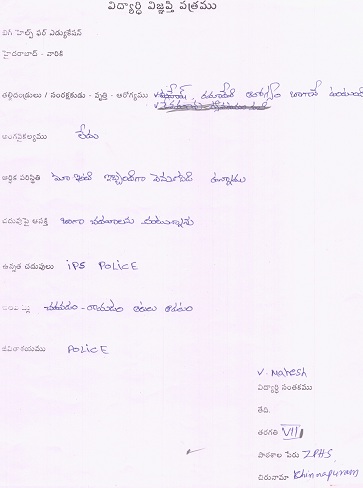 విద్యార్థి విజ్ఞప్తి పత్రము
బిగ్ హెల్ప్ ఫర్ ఎడ్యుకేషన్
హైదరాబాద్ - వారికి
తల్లిదండ్రులు / సంరక్షకుడు - వృత్తి - ఆరోగ్యము ఆరోగ్యం బాగానే
అంగవైకల్యము లేదు
ఆర్థిక పరిస్థితి మా ఇంటి ఇబ్బందిగా ఉన్నాము
చదువుపై ఆసక్తి బాగా చదవాలని
ఉన్నత చదువులు IPS POLICE
చదవడం - రాయడం ఆటలు ఆడటం
జీవితాశయము POLICE
V. Naresh
విద్యార్థి సంతకము
తేది.
తరగతి VII
పాఠశాల పేరు ZPHS,
చిరునామా Chinnapuram